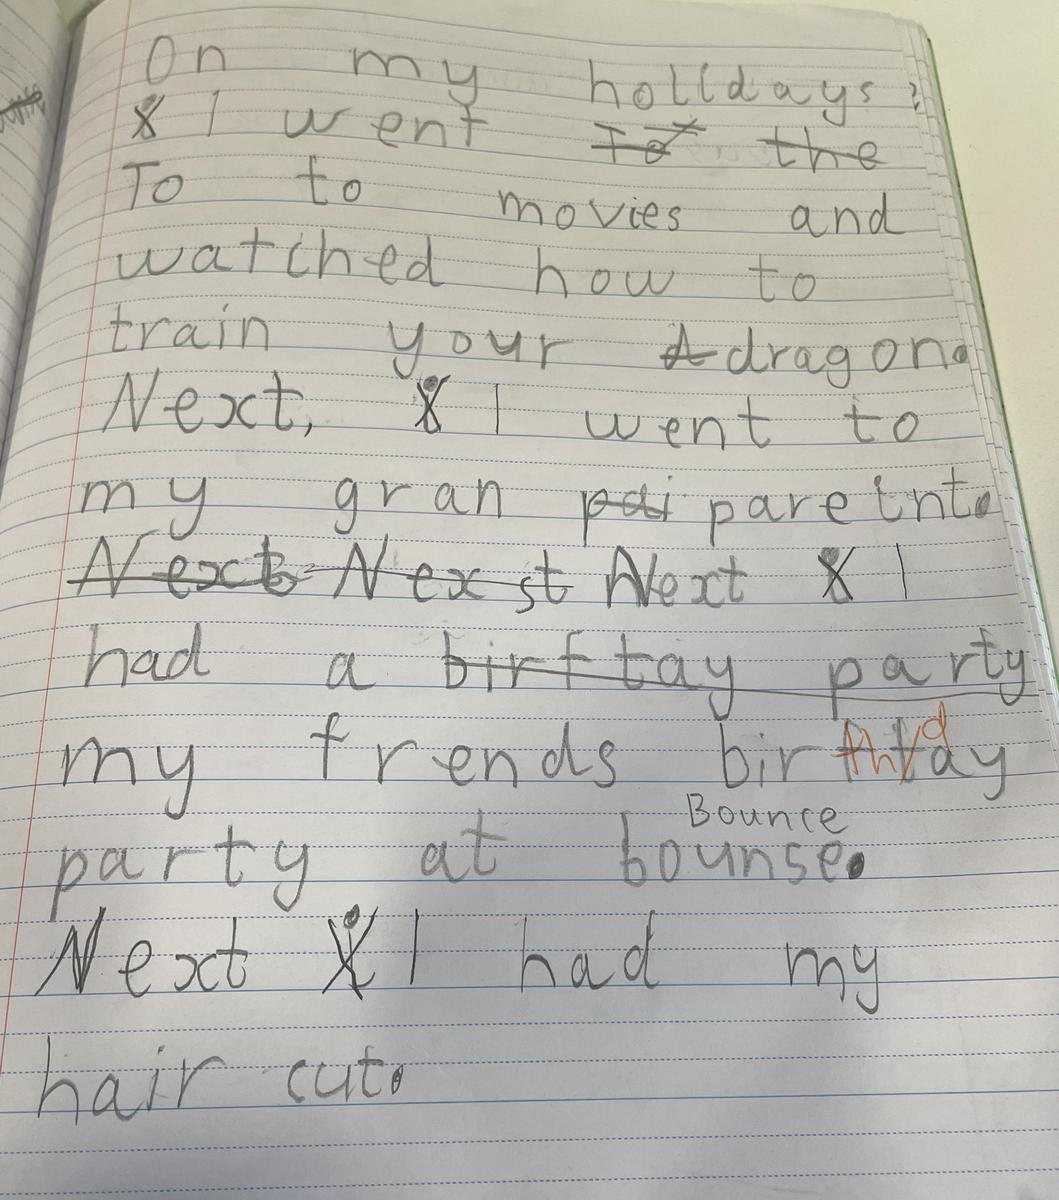 On my holidays
I went To the
To to movies and
watched how to
train your A dragon.
Next, I went to
my gran pai pareint.
Next Nexst Next I
had a birftay party
my frends birthday
Bounce
party at bounse.
Next I had my
hair cut.